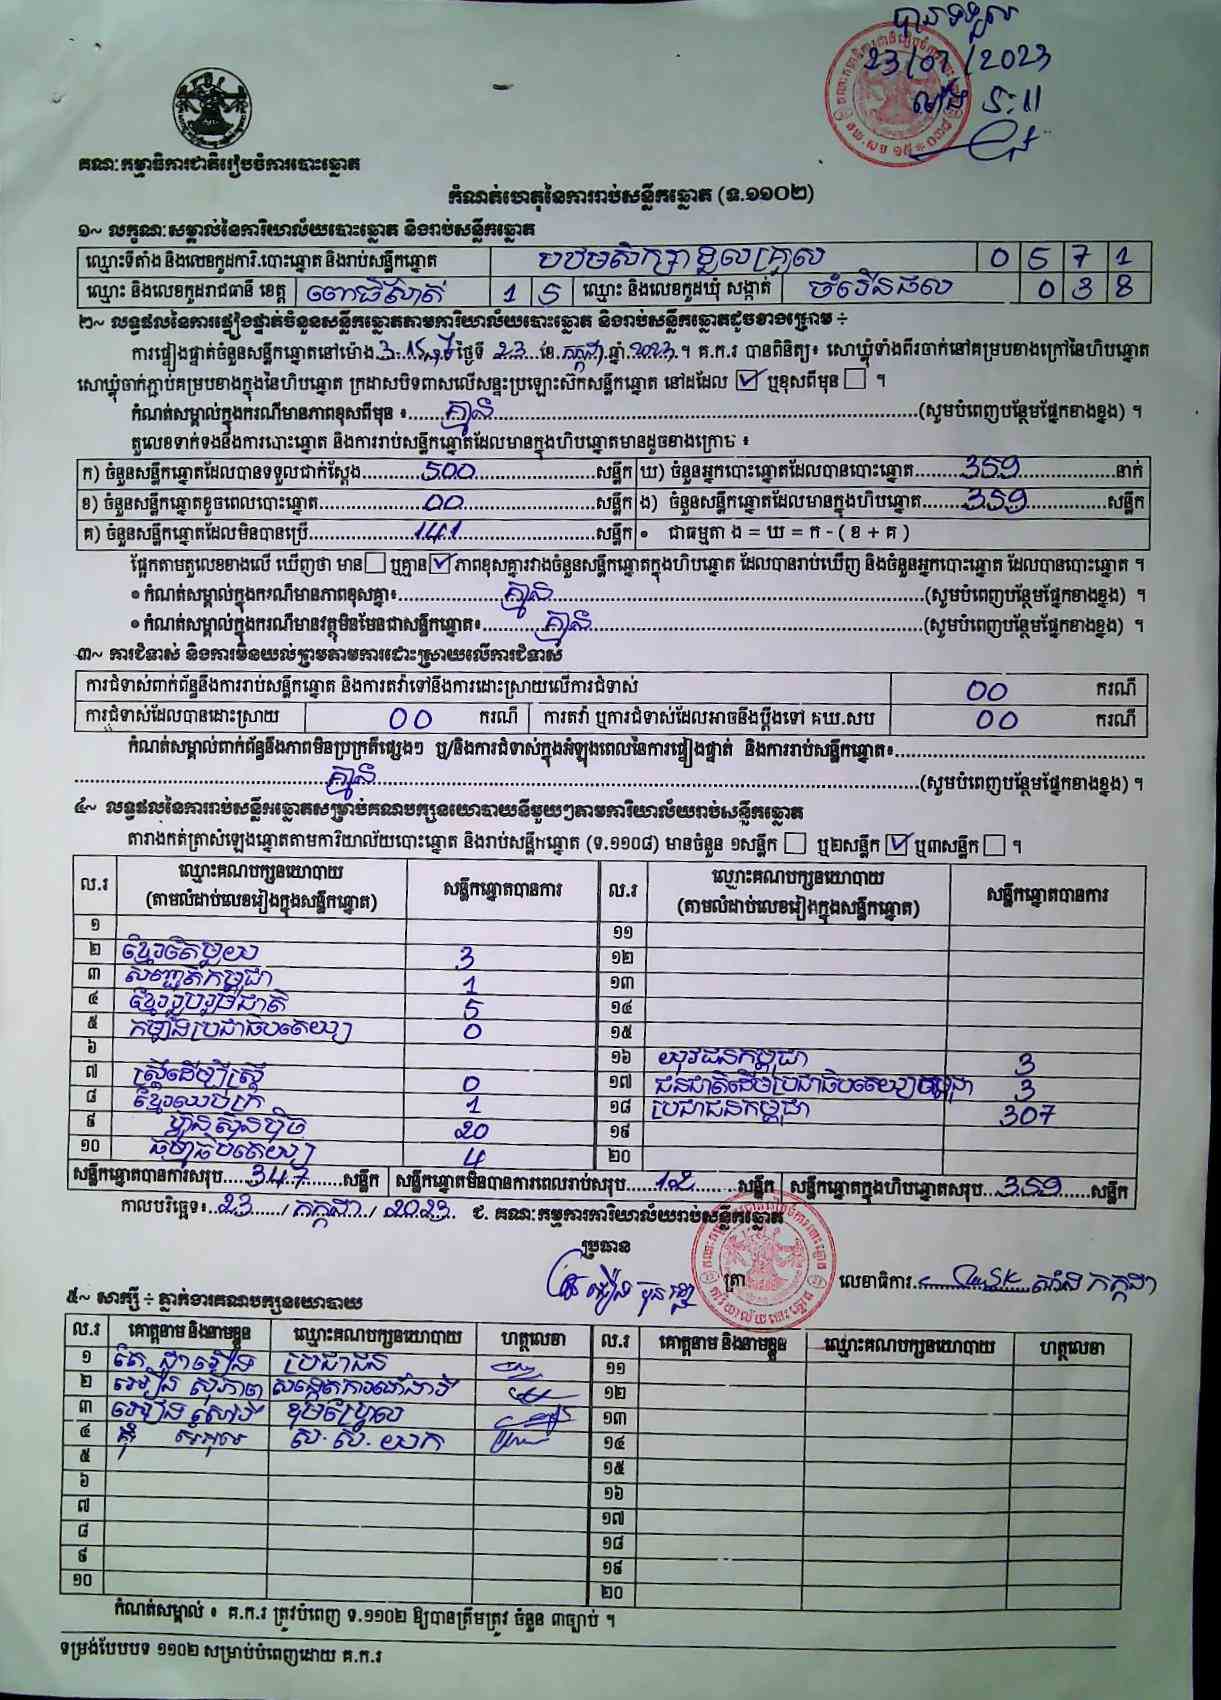 បានទទួល
23/07/2023
គណៈកម្មាធិការជាតិរៀបចំការបោះឆ្នោត
កំណត់ហេតុនៃការរាប់សន្លឹកឆ្នោត (ទ.១១០២)
១~ លក្ខណៈសម្គាល់នៃការិយាល័យបោះឆ្នោត និងរាប់សន្លឹកឆ្នោត
ឈ្មោះទីតាំង និងលេខកូដការិ.បោះឆ្នោត និងរាប់សន្លឹកឆ្នោត បឋមសិក្សា 0 5 7 1
ឈ្មោះ និងលេខកូដរាជធានី ខេត្ត ពោធិ៍សាត់ 1 5 ឈ្មោះ និងលេខកូដឃុំ សង្កាត់ ចំរើនផល 0 3 8
២~ លទ្ធផលនៃការផ្ទៀងផ្ទាត់ចំនួនសន្លឹកឆ្នោតតាមការិយាល័យបោះឆ្នោត និងរាប់សន្លឹកឆ្នោតដូចខាងក្រោម ÷
ការផ្ទៀងផ្ទាត់ចំនួនសន្លឹកឆ្នោតនៅម៉ោង 3 ថ្ងៃទី 23 ខែ កក្កដា ឆ្នាំ 2023 ។ គ.ក.រ បានពិនិត្យ៖ សោឃ្លុំទាំងពីរចាក់នៅគម្របខាងក្រៅនៃហិបឆ្នោត
សោឃ្លុំចាក់ភ្ជាប់គម្របខាងក្នុងនៃហិបឆ្នោត ក្រដាសបិទពាសលើសន្ទះប្រឡោះស៊កសន្លឹកឆ្នោត នៅដដែល ☑ ឬខុសពីមុន ☐ ។
កំណត់សម្គាល់ក្នុងករណីមានភាពខុសពីមុន ៖ គ្មាន (សូមបំពេញបន្ថែមផ្នែកខាងខ្នង) ។
តួលេខទាក់ទងនឹងការបោះឆ្នោត និងការរាប់សន្លឹកឆ្នោតដែលមានក្នុងហិបឆ្នោតមានដូចខាងក្រោម ៖
ក) ចំនួនសន្លឹកឆ្នោតដែលបានទទួលជាក់ស្តែង 500 សន្លឹក ឃ) ចំនួនអ្នកបោះឆ្នោតដែលបានបោះឆ្នោត 359 នាក់
ខ) ចំនួនសន្លឹកឆ្នោតខូចពេលបោះឆ្នោត 00 សន្លឹក ង) ចំនួនសន្លឹកឆ្នោតដែលមានក្នុងហិបឆ្នោត 359 សន្លឹក
គ) ចំនួនសន្លឹកឆ្នោតដែលមិនបានប្រើ 141 សន្លឹក • ជាធម្មតា ង = ឃ = ក - ( ខ + គ )
ផ្អែកតាមតួលេខខាងលើ ឃើញថា មាន ☐ ឬគ្មាន ☑ ភាពខុសគ្នារវាងចំនួនសន្លឹកឆ្នោតក្នុងហិបឆ្នោត ដែលបានរាប់ឃើញ និងចំនួនអ្នកបោះឆ្នោត ដែលបានបោះឆ្នោត ។
• កំណត់សម្គាល់ក្នុងករណីមានភាពខុសគ្នា៖ គ្មាន (សូមបំពេញបន្ថែមផ្នែកខាងខ្នង) ។
• កំណត់សម្គាល់ក្នុងករណីមានវត្ថុមិនមែនជាសន្លឹកឆ្នោត៖ គ្មាន (សូមបំពេញបន្ថែមផ្នែកខាងខ្នង) ។
៣~ ការជំទាស់ និងការមិនយល់ព្រមតាមការដោះស្រាយលើការជំទាស់
ការជំទាស់ពាក់ព័ន្ធនឹងការរាប់សន្លឹកឆ្នោត និងការតវ៉ាទៅនឹងការដោះស្រាយលើការជំទាស់ 00 ករណី
ការជំទាស់ដែលបានដោះស្រាយ 00 ករណី ការតវ៉ា ឬការជំទាស់ដែលអាចនឹងប្តឹងទៅ គឃ.សប 00 ករណី
កំណត់សម្គាល់ពាក់ព័ន្ធនឹងភាពមិនប្រក្រតីផ្សេងៗ ឬ/និងការជំទាស់ក្នុងអំឡុងពេលនៃការផ្ទៀងផ្ទាត់ និងការរាប់សន្លឹកឆ្នោត៖
គ្មាន (សូមបំពេញបន្ថែមផ្នែកខាងខ្នង) ។
៤~ លទ្ធផលនៃការរាប់សន្លឹកឆ្នោតសម្រាប់គណបក្សនយោបាយនីមួយៗតាមការិយាល័យរាប់សន្លឹកឆ្នោត
តារាងកត់ត្រាសំឡេងឆ្នោតតាមការិយាល័យបោះឆ្នោត និងរាប់សន្លឹកឆ្នោត (ទ.១១០៨) មានចំនួន ១សន្លឹក ☐ ឬ២សន្លឹក ☑ ឬ៣សន្លឹក ☐ ។
ល.រ ឈ្មោះគណបក្សនយោបាយ (តាមលំដាប់លេខរៀងក្នុងសន្លឹកឆ្នោត) សន្លឹកឆ្នោតបានការ ល.រ ឈ្មោះគណបក្សនយោបាយ (តាមលំដាប់លេខរៀងក្នុងសន្លឹកឆ្នោត) សន្លឹកឆ្នោតបានការ
១ ១១
២ ខ្មែរតែមួយ 3 ១២
៣ សញ្ជាតិកម្ពុជា 1 ១៣
៤ ខ្មែររួបរួមជាតិ 5 ១៤
៥ កម្លាំងប្រជាធិបតេយ្យ 0 ១៥
៦ ១៦ យុវជនកម្ពុជា 3
៧ ស្ត្រីដើម្បីស្ត្រី 0 ១៧ ជនជាតិដើមប្រជាធិបតេយ្យកម្ពុជា 3
៨ ខ្មែរឈប់ក្រ 1 ១៨ ប្រជាជនកម្ពុជា 307
៩ ហ្វ៊ុនស៊ិនប៉ិច 20 ១៩
១០ ធម្មាធិបតេយ្យ 4 ២០
សន្លឹកឆ្នោតបានការសរុប 347 សន្លឹក សន្លឹកឆ្នោតមិនបានការពេលរាប់សរុប 12 សន្លឹក សន្លឹកឆ្នោតក្នុងហិបឆ្នោតសរុប 359 សន្លឹក
កាលបរិច្ឆេទ៖ 23 / កក្កដា / 2023 ជ. គណៈកម្មការការិយាល័យរាប់សន្លឹកឆ្នោត
ប្រធាន
ត្រា លេខាធិការ កក្កដា
៥~ សាក្សី ÷ ភ្នាក់ងារគណបក្សនយោបាយ
ល.រ គោត្តនាម និងនាមខ្លួន ឈ្មោះគណបក្សនយោបាយ ហត្ថលេខា ល.រ គោត្តនាម និងនាមខ្លួន ឈ្មោះគណបក្សនយោបាយ ហត្ថលេខា
១ ប្រជាជន ១១
២ ១២
៣ ១៣
៤ ស.ស.យក ១៤
៥ ១៥
៦ ១៦
៧ ១៧
៨ ១៨
៩ ១៩
១០ ២០
កំណត់សម្គាល់ ៖ គ.ក.រ ត្រូវបំពេញ ទ.១១០២ ឱ្យបានត្រឹមត្រូវ ចំនួន ៣ច្បាប់ ។
ទម្រង់បែបបទ ១១០២ សម្រាប់បំពេញដោយ គ.ក.រ